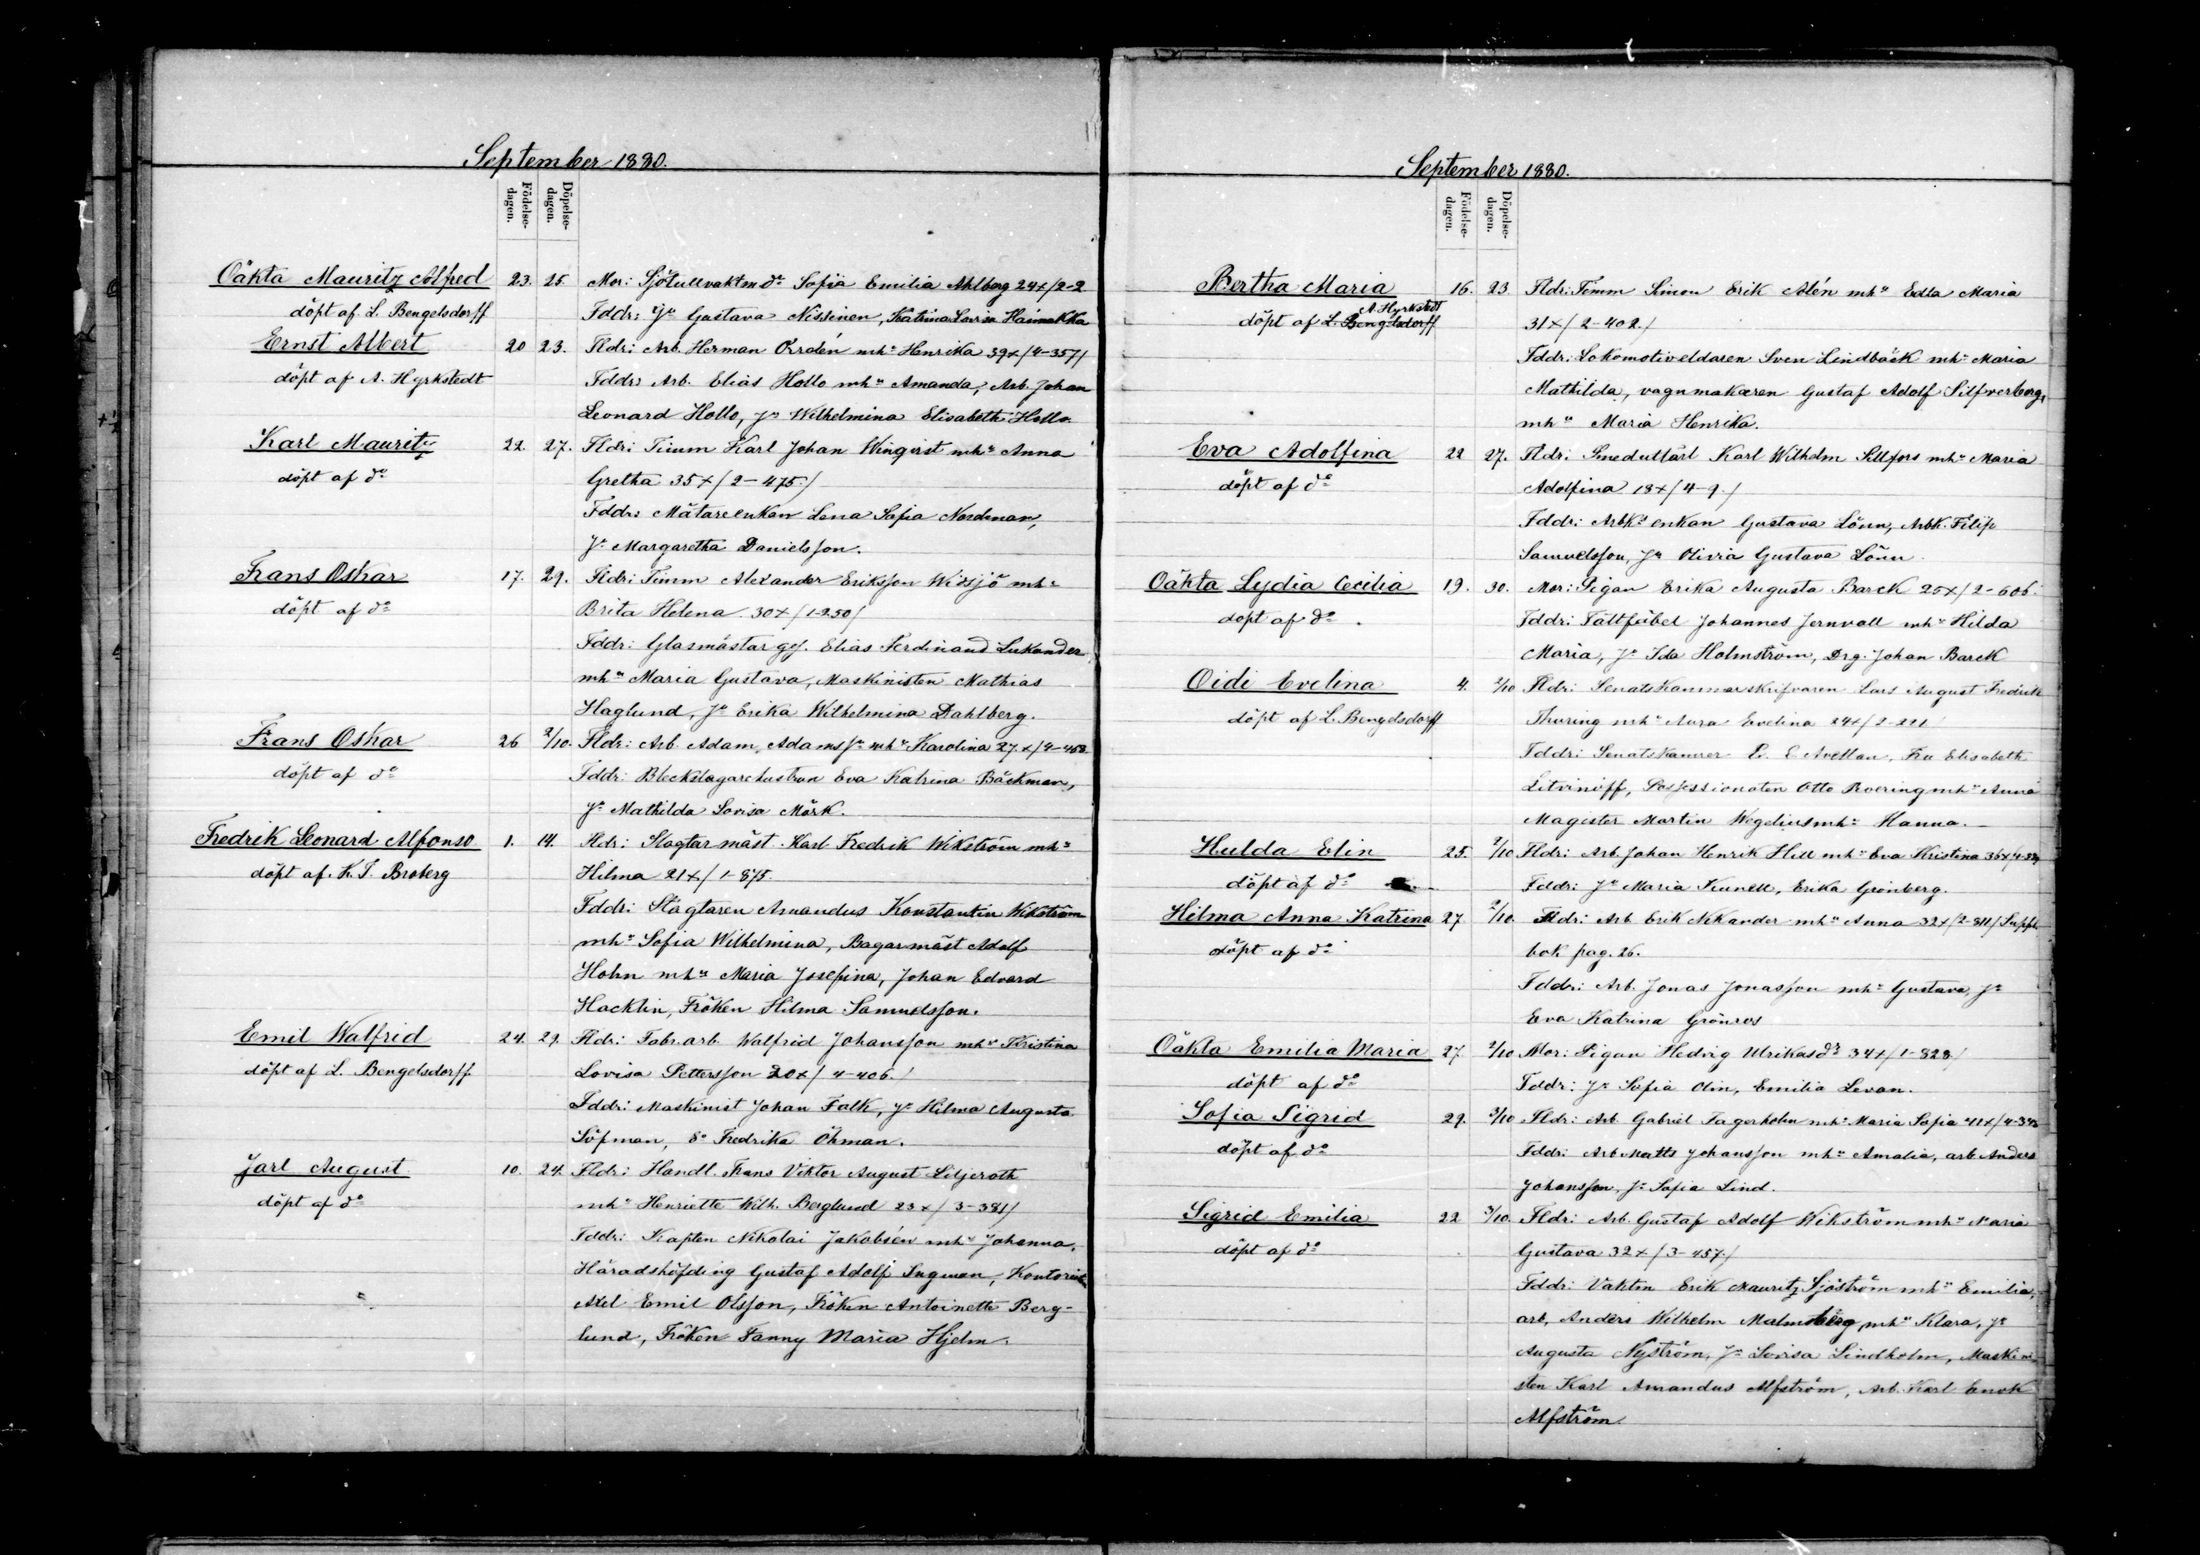 September 1880.
Födelse-dagen.
Döpelse-dagen.
Oäkta Mauritz Alfred 23. 25. Mor: Sjötullvaktm dr Sofia Emilia Ahlberg 24x/2-2
döpt af L. Bengelsdorff Fddr: Jn Gustava Nissinen, Katrina Lovisa Haimakka
Ernst Albert 20 23. Fldr: Arb. Herman Orrdén mh: Henrika 39x/4-357/
döpt af A. Hyrkstedt Fddr: Arb. Elias Hollo mh: Amanda, Arb. Johan
Leonard Hollo, Jn Wilhelmina Elisabeth Hollo.
Karl Mauritz 22. 27. Fldr: Timm Karl Johan Winqvist mh: Anna
döpt af do Gretha 35x/2-475./
Fddr: Mätareenkan Lena Sofia Nordman,
Jn Margaretha Danielsson.
Frans Oskar 17. 29. Fldr: Timm Alexander Eriksson Widsjö mh:
döpt af do Brita Helena 30x/1-250/
Fddr: Glasmästar ges. Elias Ferdinand Lukander
mh: Maria Gustava, Maskinisten Mathias
Haglund, Jn Erika Wilhelmina Dahlberg.
Frans Oskar 26 2/10. Fldr: Arb. Adam Adamss: mh: Karolina 27x/4-452
döpt af do Fddr: Bleckslagarehustrun Eva Katrina Bäckman,
Jn Mathilda Lovisa Mörk.
Fredrik Leonard Alfonso 1. 14. Fldr: Slagtar mäst. Karl Fredrik Wikström mh:
döpt af K. J. Broberg Hilma 21x/1-875.
Fddr: Slagtaren Amandus Konstantin Wikström
mh: Sofia Wilhelmina, Bagarmäst Adolf
Holm mh: Maria Josefina, Johan Edvard
Hacklin, Fröken Hilma Samuelsson.
Emil Walfrid 24. 29. Fldr: Fabr.arb. Walfrid Johansson mh: Kristina
döpt af L. Bengelsdorff Lovisa Pettersson 20x/4-406./
Fddr: Maskinist Johan Falk, Jn Hilma Augusta
Söfman, do Fredrika Öhman.
Jarl August 10. 24. Fldr: Handl. Frans Viktor August Liljeroth
döpt af do mh: Henriette Wilh. Berglund 23x/3-381/
Fddr: Kapten Nikolai Jakobsén mh: Johanna,
Häradshöfding Gustaf Adolf Ingman, Kontorist
Axel Emil Olsson, Fröken Antoinette Berg-
lund, Fröken Fanny Maria Hjelm.
September 1880.
Födelse-dagen.
Döpelse-dagen.
Bertha Maria 16. 23 Fldr: Timm Simon Erik Alén mh: Edla Maria
A. Hyrkstedt
döpt af L. Bengelsdorff 31x/2-402./
Fddr: Lokomotiveldaren Sven Lindbäck mh: Maria
Mathilda, vagnmakaren Gustaf Adolf Silfverberg,
mh: Maria Henrika.
Eva Adolfina 22 27. Fldr: Smedutlärl Karl Wilhelm Sillfors mh: Maria
döpt af do Adolfina 18x/4-9./
Fddr: Arbks enkan Gustava Lönn, Arbk. Filip
Samuelsson, Jn Olivia Gustava Lönn.
Oäkta Lydia Cecilia 19. 30. Mor: Pigan Erika Augusta Barck 25x/2-606.
döpt af do Fddr: Fältfäbel Johannes Jernvall mh: Hilda
Maria, Jn Ida Holmström, Drg. Johan Barck
Oidi Evelina 4. 2/10 Fldr: Senatskammarskrifvaren Lars August Fredrik
döpt af L. Bengelsdorff Thuring mh: Aura Evelina 24x/2-221
Fddr: Senatskamrer E. E Avellan, Fru Elisabeth
Litvinoff, Possessionaten Otto Roering mh: Anna
Magister Martin Wegelius mh: Hanna.
Hulda Elin 25. 2/10 Fldr: Arb. Johan Henrik Hill mh: Eva Kristina
döpt af do Fddr: Jn Maria Kunell, Erika Grönberg.
Hilma Anna Katrina 27 2/10. Fldr: Arb Erik Nikander mh: Anna 32x/2-811/Suppl.
döpt af do bok pag. 26.
Fddr: Arb. Jonas Jonasson mh: Gustava, Jn
Eva Katrina Grönros
Oäkta Emilia Maria 27 2/10 Mor: Pigan Hedvig Ulrikasdr 34x/1-828./
döpt af do Fddr: Jn Sofia Olin, Emilia Levan.
Sofia Sigrid 29. 3/10 Fldr: Arb. Gabriel Fagerholm mh: Maria Sofia 41x/4-343
döpt af do Fddr: Arb Matts Johansson mh: Amalia, arb Anders
Johansson, Jn Sofia Lind.
Sigrid Emilia 22 3/10. Fldr: Arb. Gustaf Adolf Wikström mh: Maria
döpt af do Gustava 32x/3-457./
Fddr: Vaktm Erik Mauritz Sjöström mh: Emilia,
arb, Anders Wilhelm Malmberg mh: Klara, Jn
Augusta Nyström, Jn Lovisa Lindholm, Maskini-
sten Karl Amandus Alfström, Arb. Karl Enok
Alfström